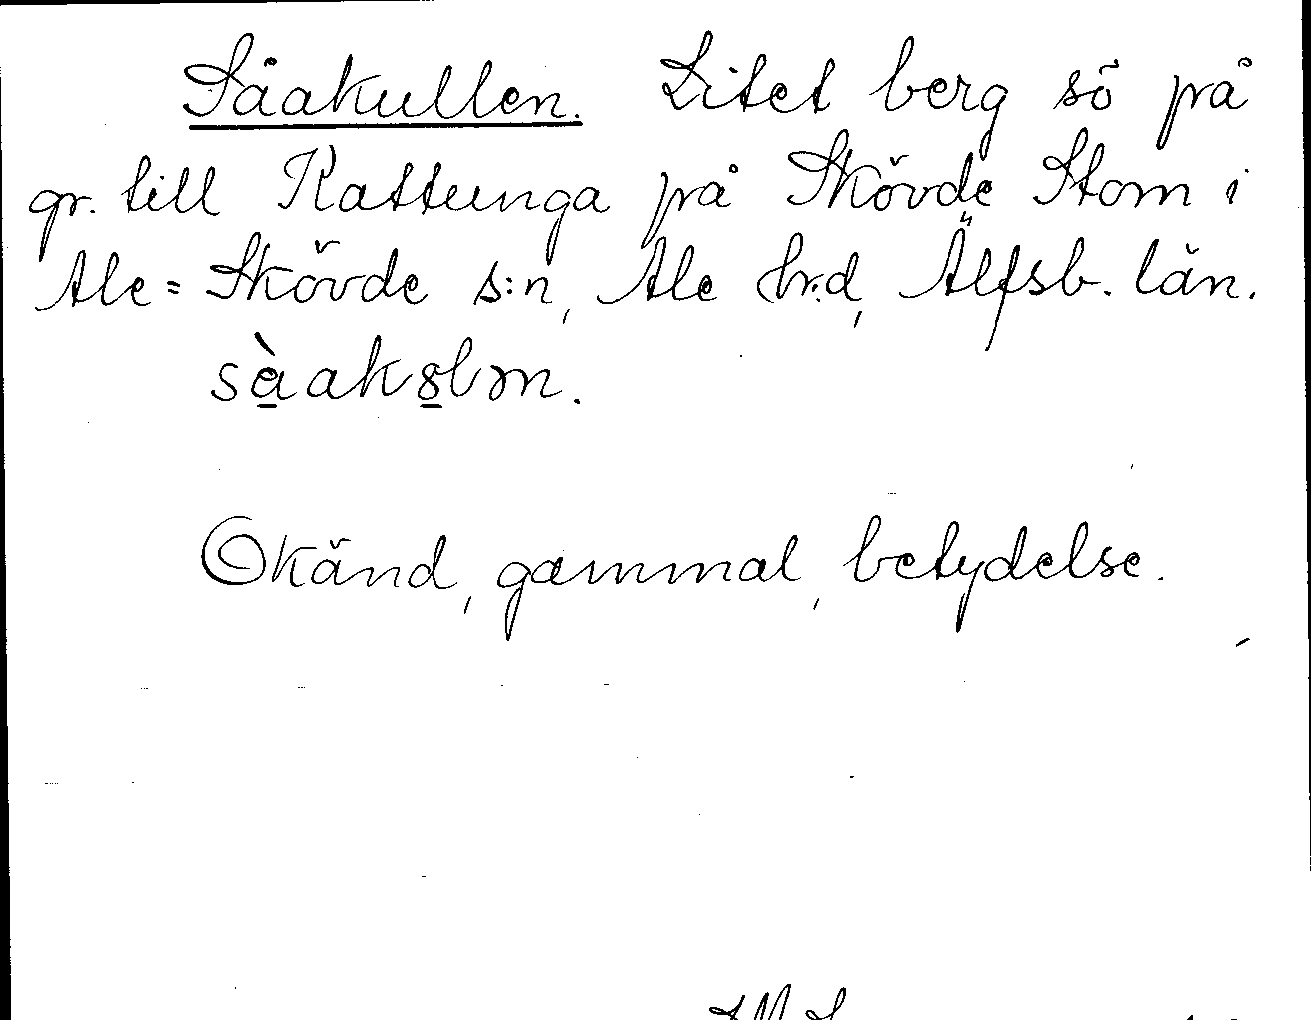 Såakullen. Litet berg sö på
gr. till Kattunga på Skövde Stom i
Ale=Skövde s:n, Ale hrd, Älfsb. län.
Okänd, gammal, betydelse.